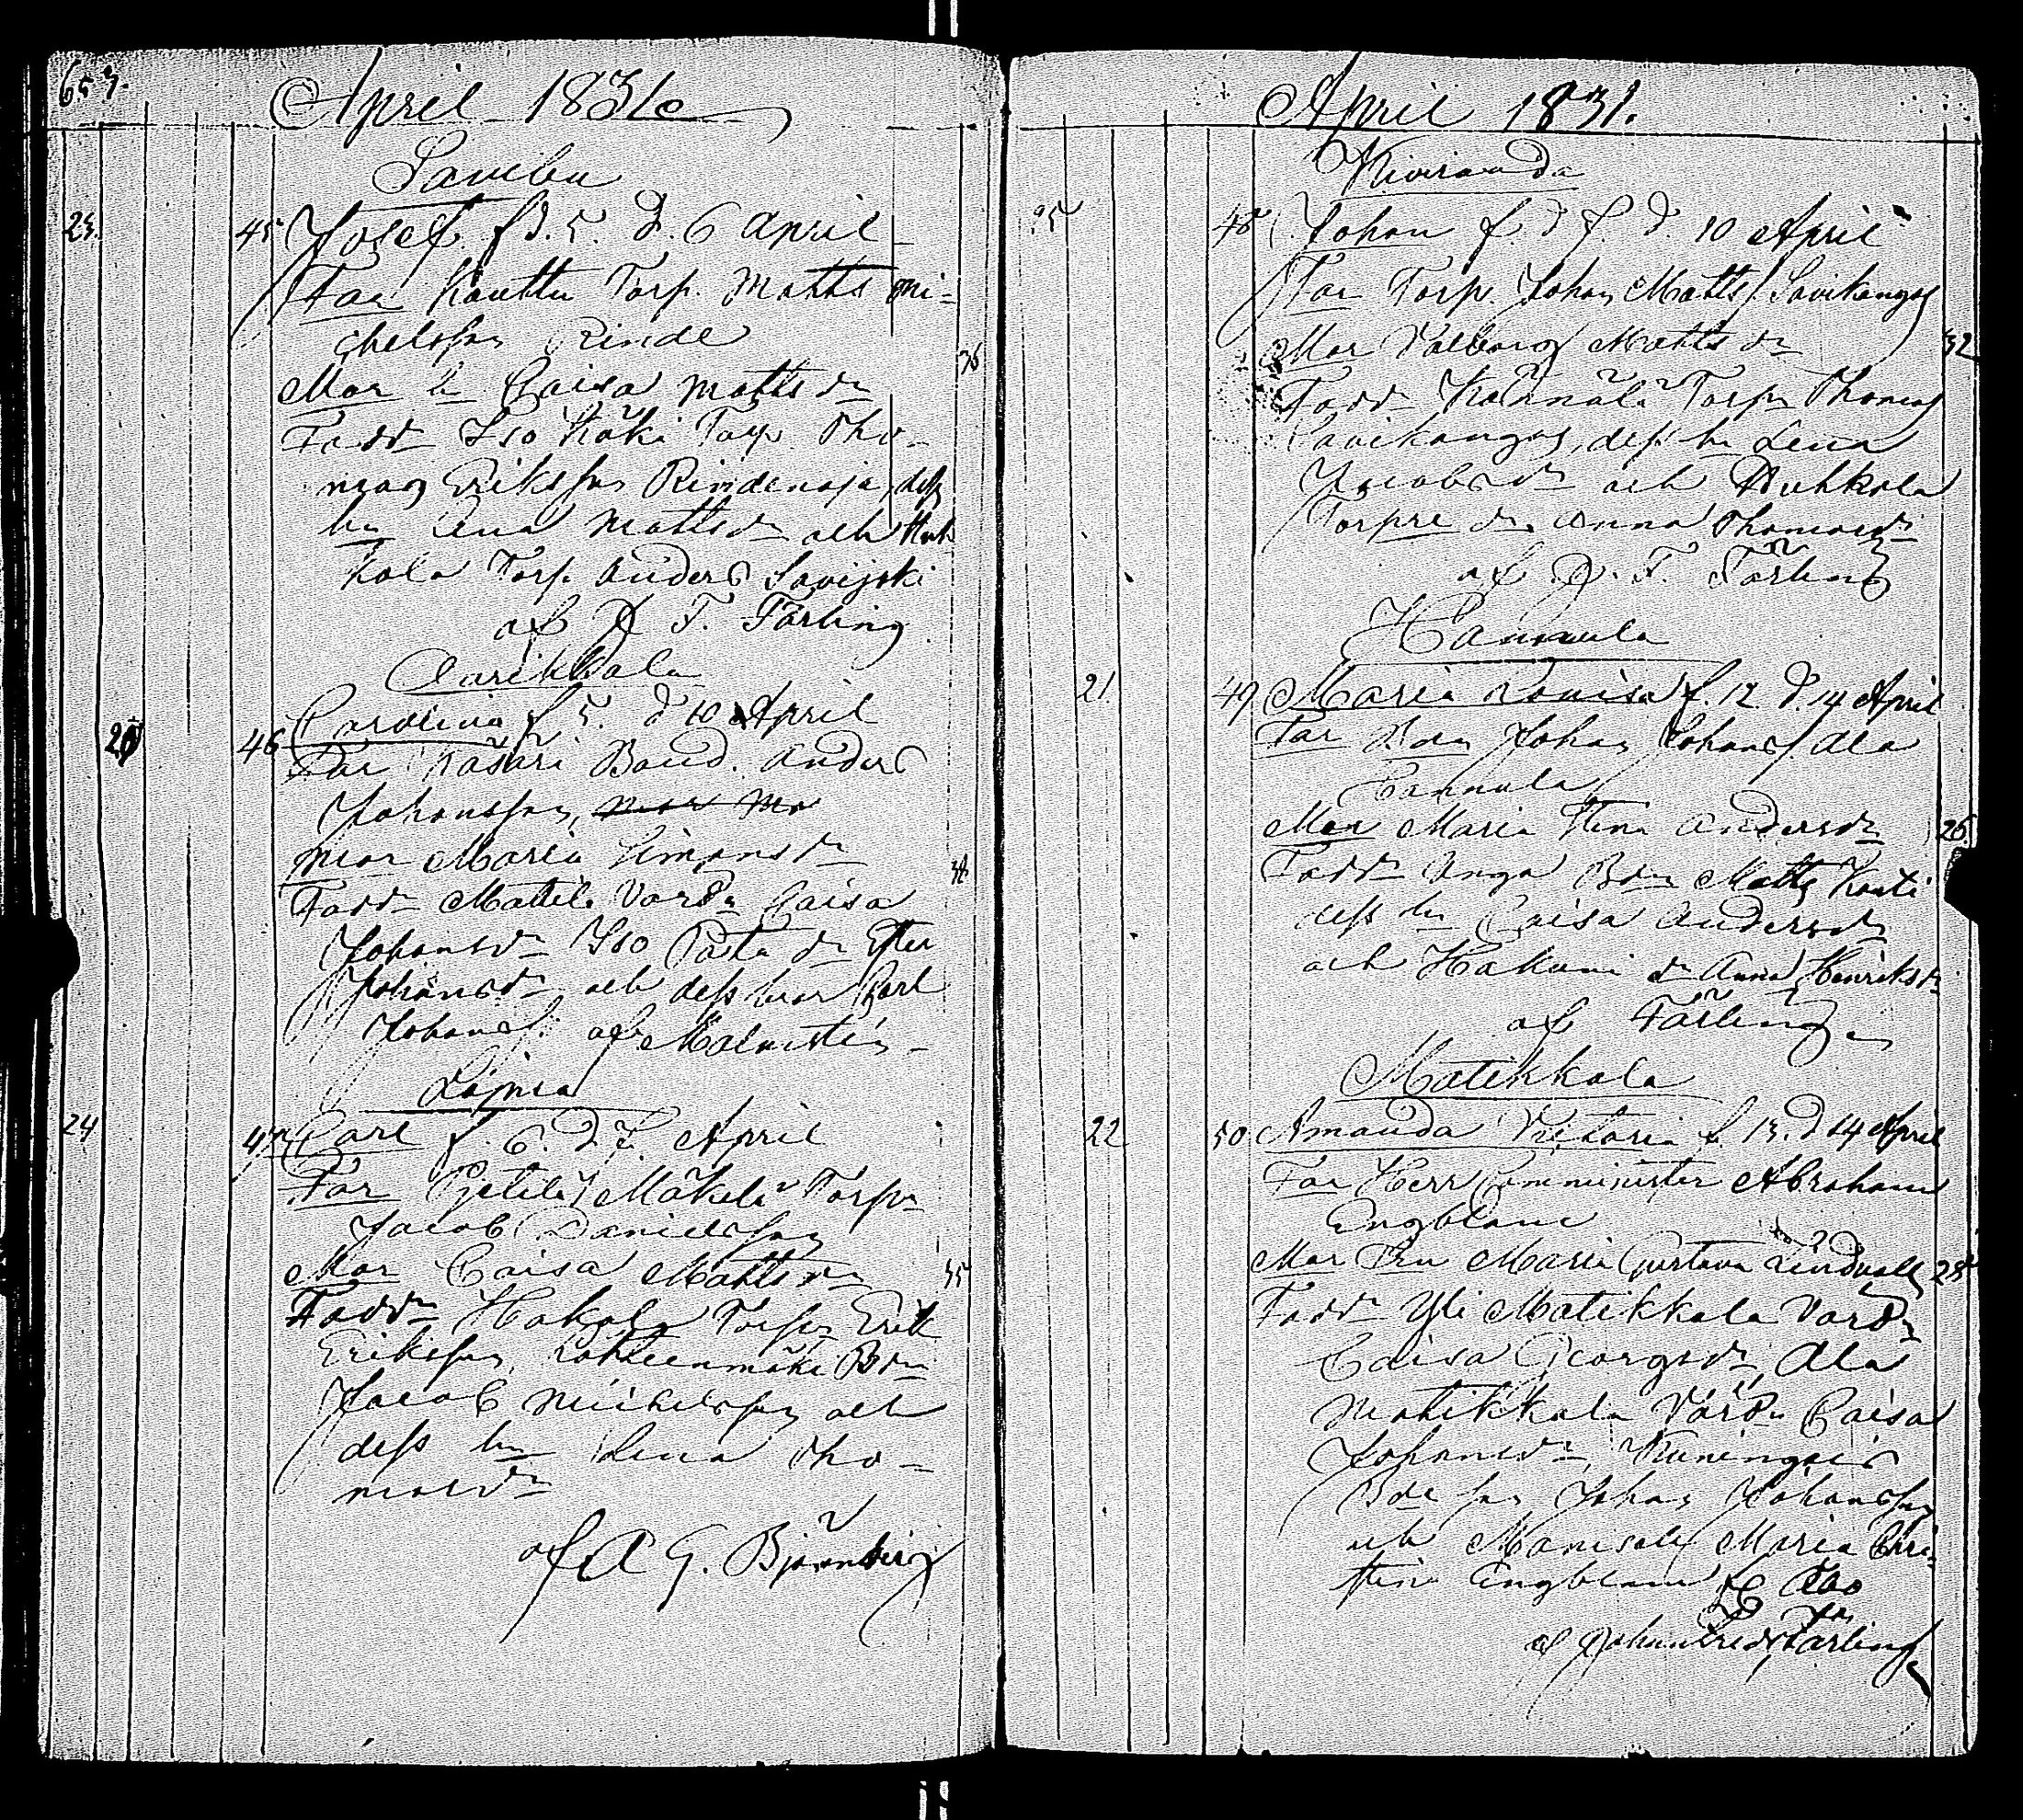 653.
April 1831
Sambu
23. 45 Josef f. d. 5. d. 6 April
Far Kauttu Torp. Matts Mi-
chelsson Rinde
Mor h Caisa Mattsdr 36
Fadd Iso Käki Torp. Tho-
mas Eriksson Rindenoja, dess
hu Lena Mattsdr och Huh
kola Torp. Anders Savijoki
af J. F. Färling
Aarikkala
20 46 Carolina f 5. d 10 April
Far Kasari Bond. Anders
Johansson,
Mor Maria Simonsdr 38
Fadd Mattila Värdn Caisa
Johansdr Iso Pata dr
Johansdr och dess bror Carl
Johans af Malmstén
24 47 Carl f. 6. d 7. April
Far Pietilä Mäkelä Torpr
Jacob Danielsson
Mor Caisa Mattsdr 35
Fadd Hakola Torpn Erik
Eriksson, Bdn
Jacob Michelsson och
dess hu Lena Tho-
masdr
af A G. Björnberg
April 1831.
Kiviranda
25 48 Johan f. d 7. d. 10 April
Far Torp. Johan Matts Savikangas
Mor Valborg Mattsdr 32
Fadd Kännälä Torpn Thomas
Savikangas, dess hu Lena
Jacobsdr och Huhkola
Torpre dr Anna Thomasdr
af J. F. Färling
Cannula
21. 49 Maria Lovisa f. 12. d. 14 April
Far Bdn Johan Johans Ala
Cannula
Mor Maria Stina Andersdr 26
Fadd Anga Bdn Matts Kouti
dess hu Caisa Andersdr
och Hakuni dr Anna Henriksdr
af Färling
Matikkala
22 50 Amanda Victoria f. 13. d 14 April
Far Herr Comminister Abraham
Engblom
Mor Fru Maria Gustava Lindvall 28
Fadd Yli Matikkala Värdn
Caisa Georgsdr, Ala
Matikkala Värdn Caisa
Johansdr, Kuningais
Bde son Johan Johansson
och Mamsell Maria Chri-
stina Engblom fr Åbo
af Johan Fredr Färling